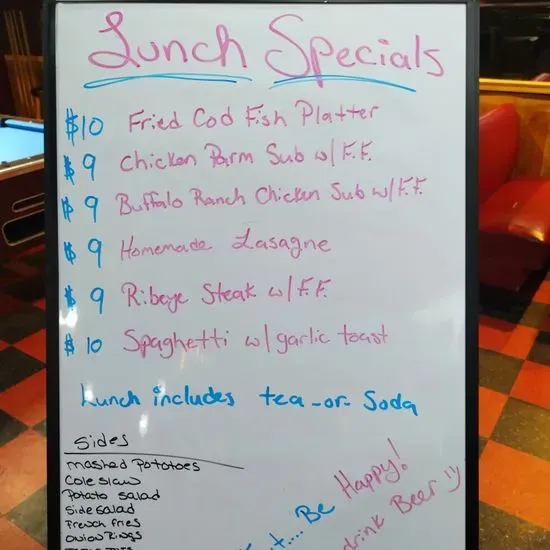 Lunch Specials
$10 Fried Cod Fish Platter
$9 Chicken Parm Sub w/F.F.
$9 Buffalo Ranch Chicken Sub w/F.F.
$9 Homemade Lasagne
$9 Ribeye Steak w/F.F.
$10 Spaghetti w/garlic toast
Lunch includes tea -or- Soda
Sides
mashed Potatoes
Cole slaw
Potato salad
Side salad
French fries
Onion Rings
Be Happy!
drink Beer :)